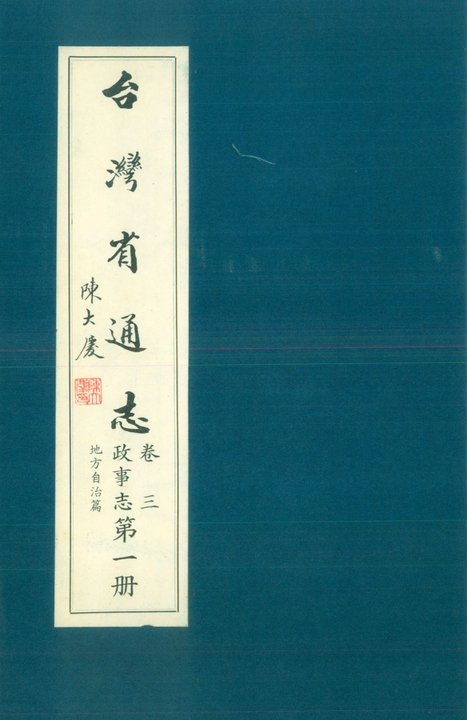 台灣省通志
卷三
政事志第一册
地方自治篇
陳大慶